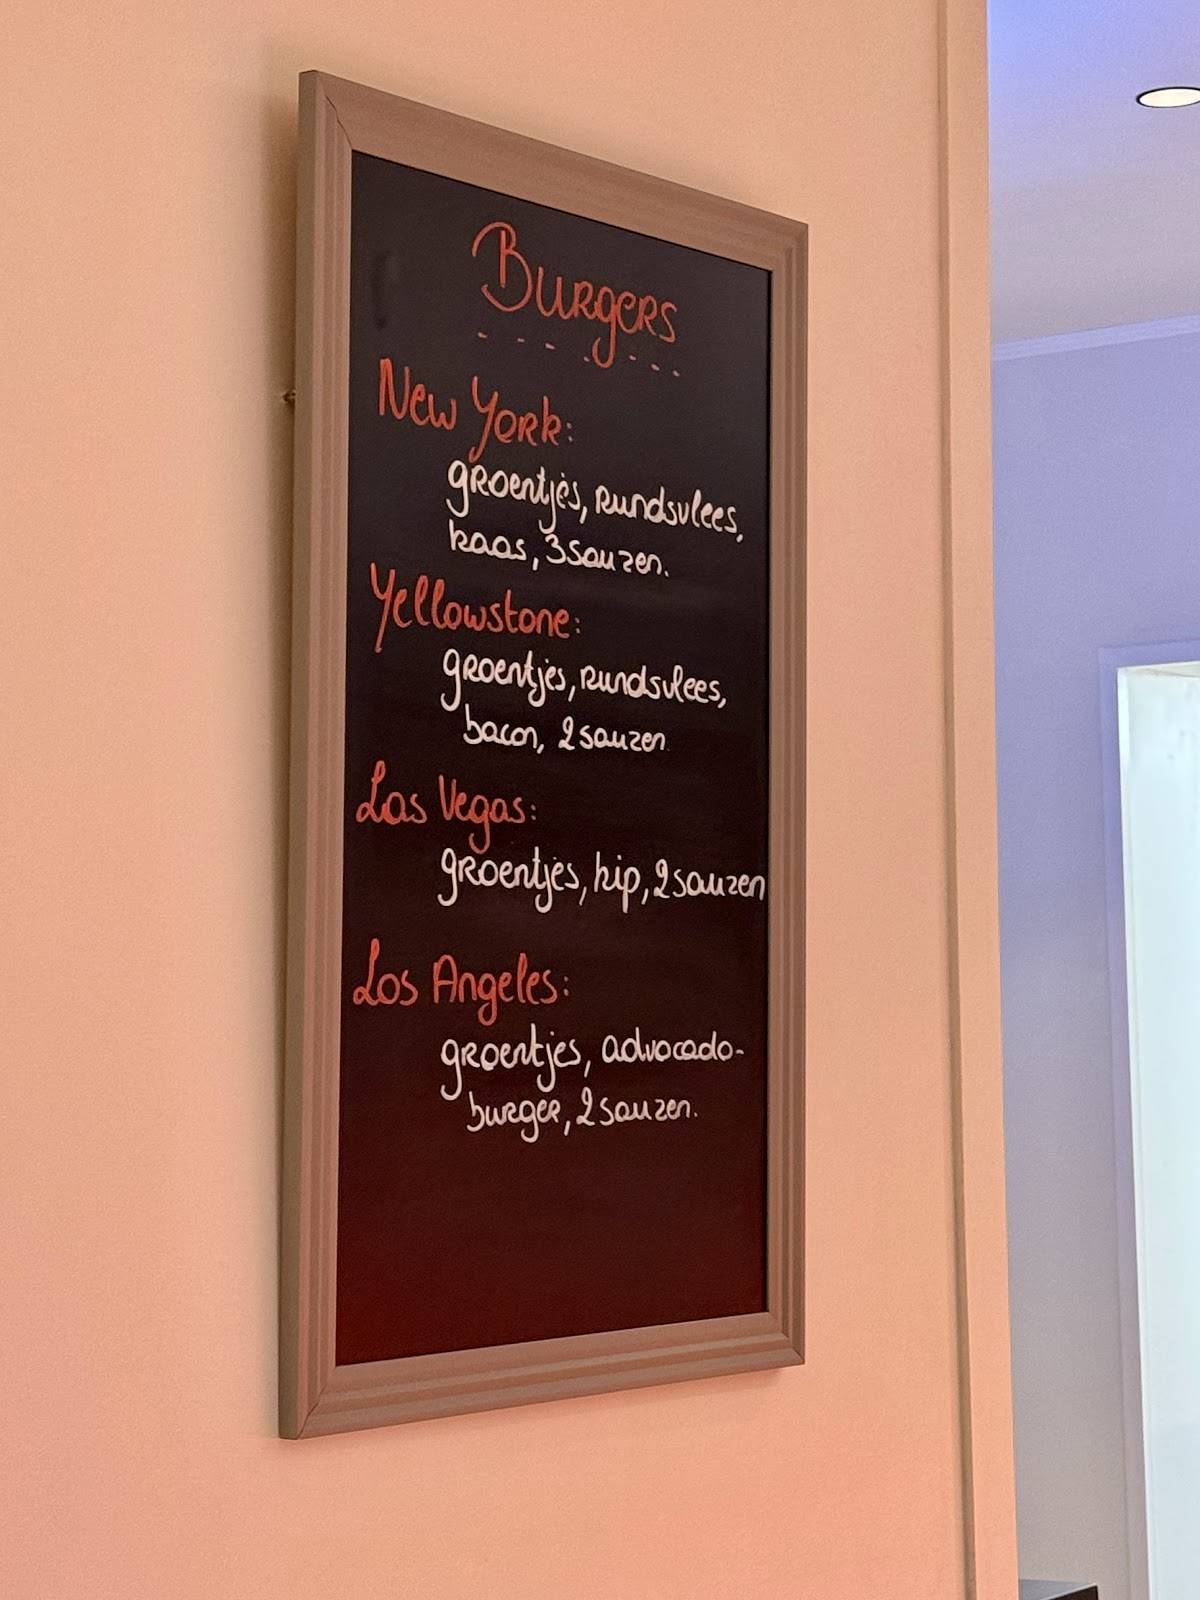 Burgers
New York:
groentjes, rundsvlees,
kaas, 3 sauzen.
Yellowstone:
groentjes, rundsvlees,
bacon, 2 sauzen.
Las Vegas:
groentjes, kip, 2 sauzen
Los Angeles:
groentjes, advocado-
burger, 2 sauzen.